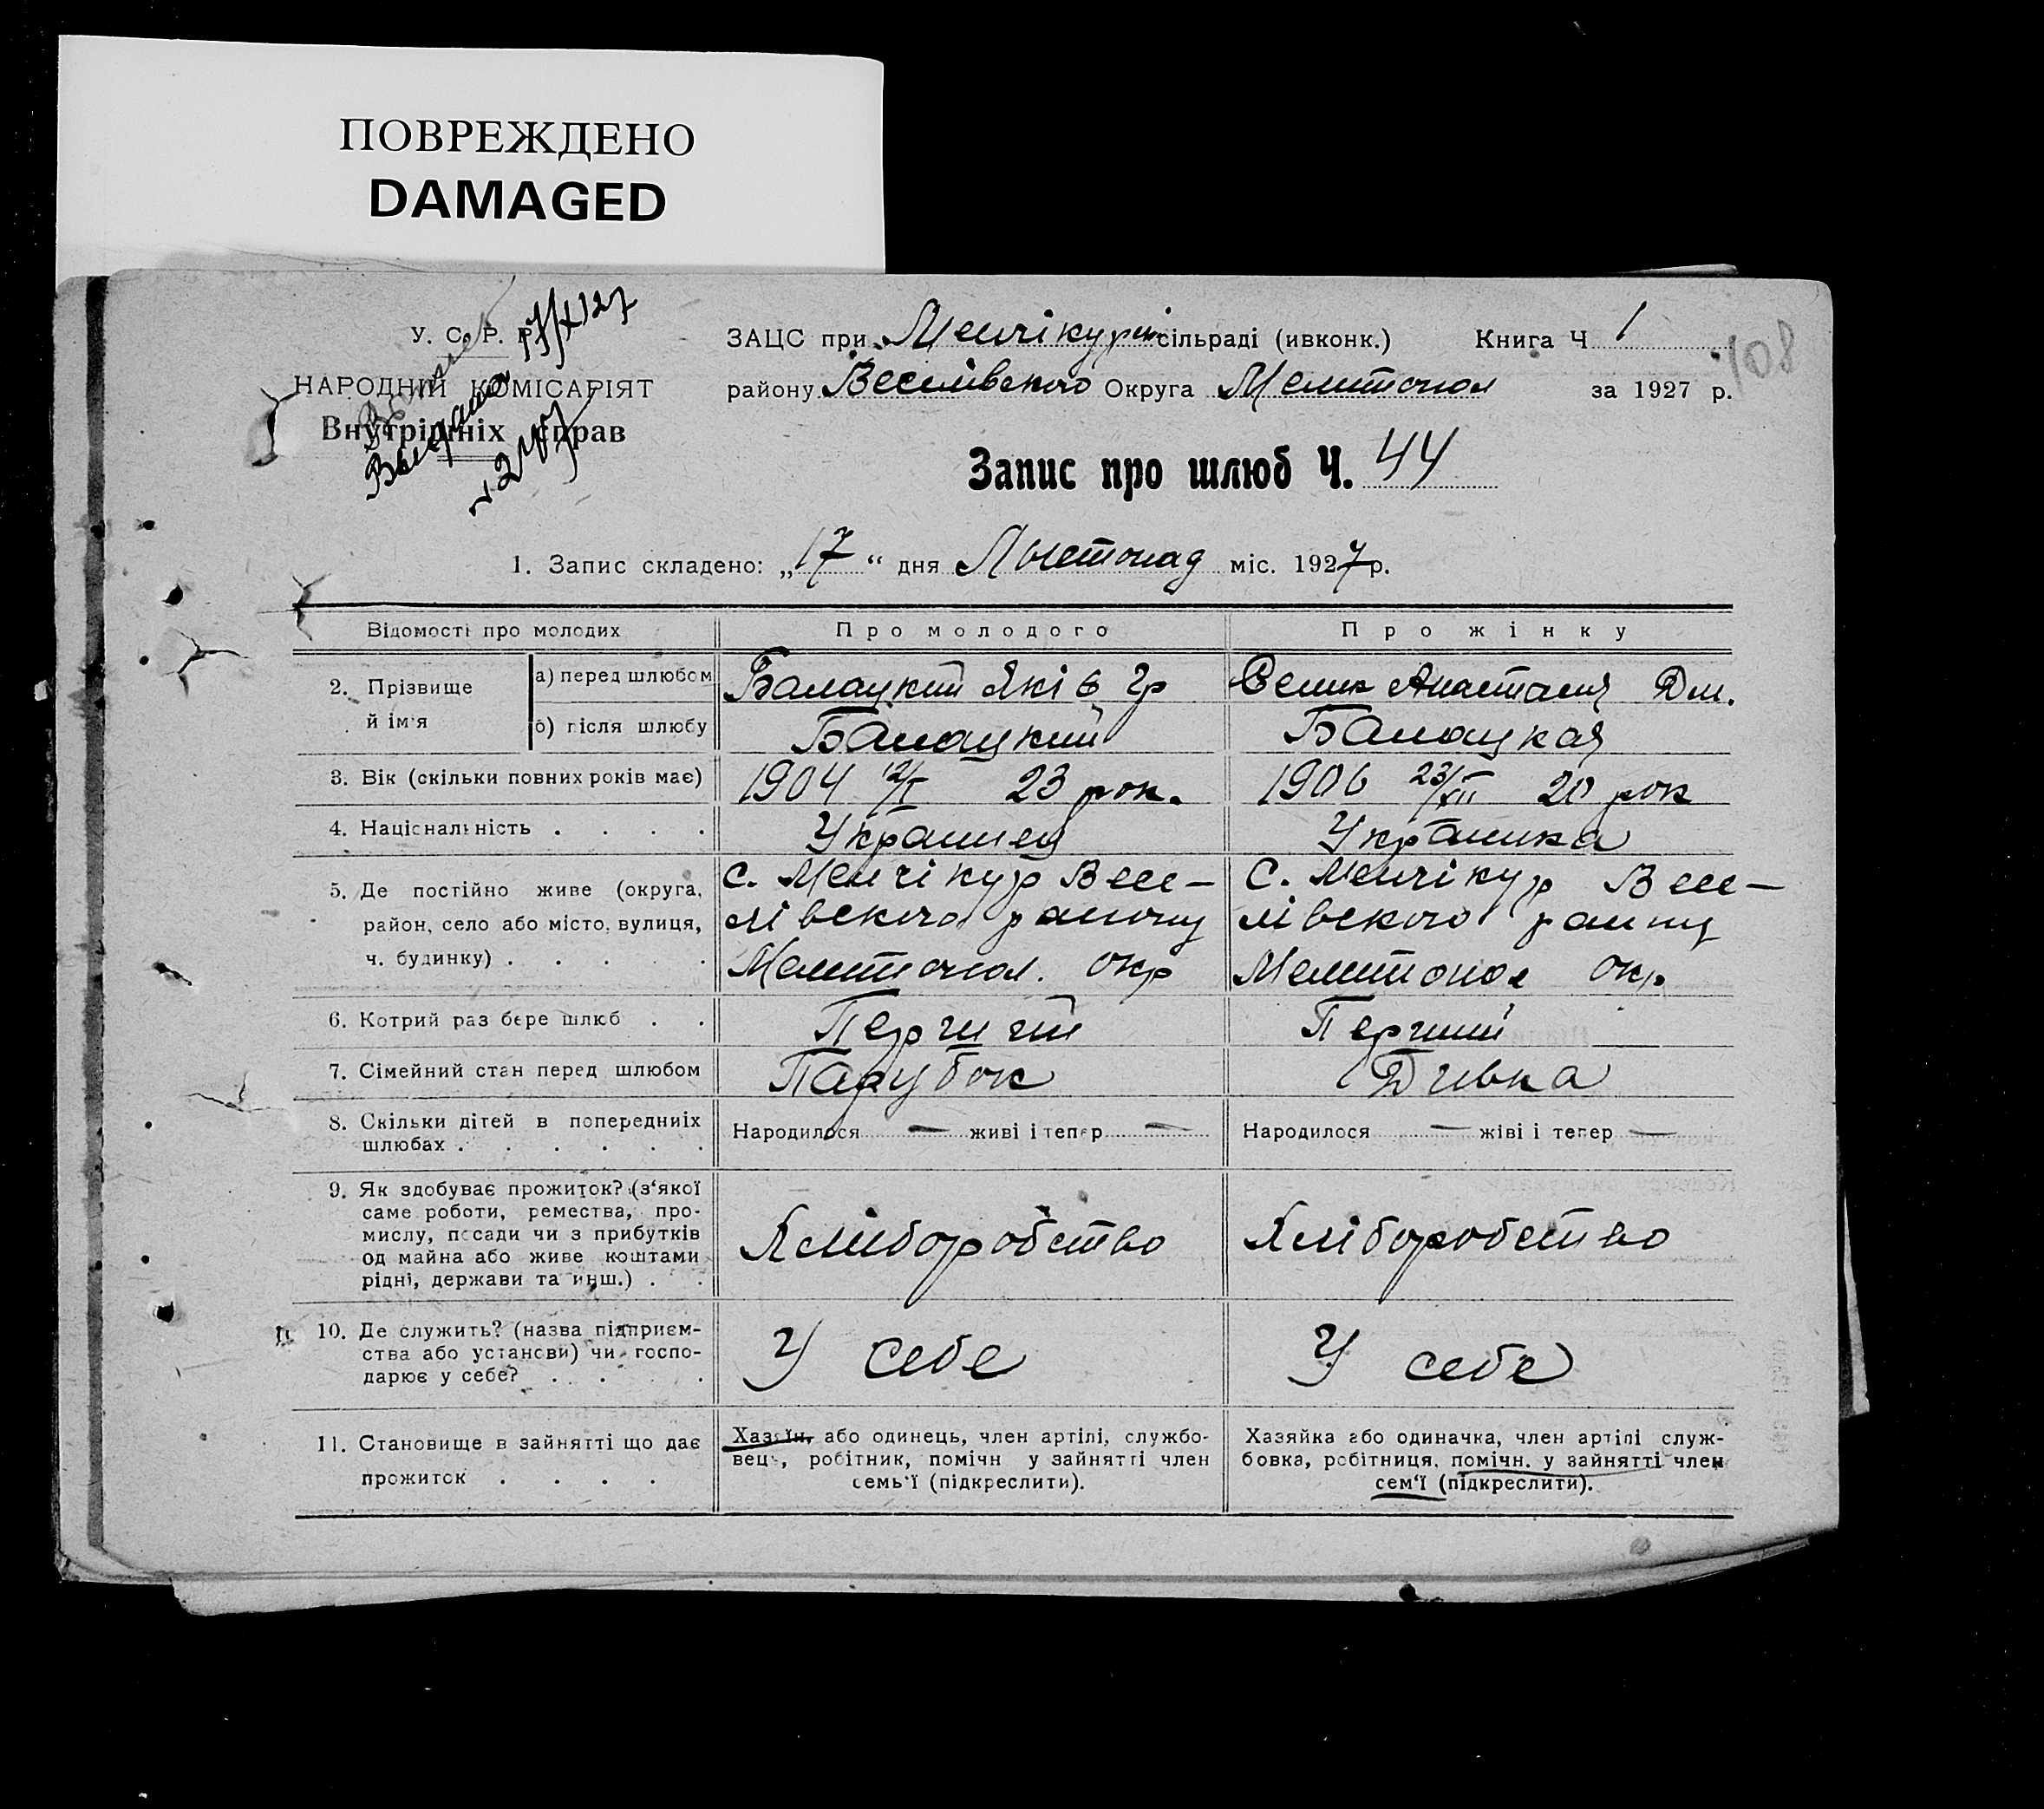 ПОВРЕЖДЕНО
DAMAGED
У. С. Р. Р.
НАРОДНИЙ КОМІСАРІЯТ
Внутрішніх справ
Выдана
ЗАЦС при Менчікурій сільраді (ивконк.) Книга Ч 1
108
району Веселівского Округа Мелитопол за 1927 р.
Запис про шлюб Ч. 44
1. Запис складено: „17“ дня Листопад міс. 1927 р.
Відомості про молодих Про молодого Про жінку
2. Прізвище й ім'я
а) перед шлюбом Балацкий Які в Гр Анастасия Дм.
б) після шлюбу Балацкий Балацкая
3. Вік (скільки повних років має) 1904 12/I 23 рок. 1906 23/XII 20 рок
4. Національність . . . . Украинец Украинка
5. Де постійно живе (округа, с. Менчікур Весе- С. Менчікур Весе-
район, село або місто, вулиця, лівского району лівского раину
ч. будинку) . . . . . Мелитопол. окр Мелитопол окр.
6. Котрий раз бере шлюб . . Перший Перший
7. Сімейний стан перед шлюбом Парубок Дивка
8. Скільки дітей в попередниіх
шлюбах . . . . . . Народилося — живі і тепер — Народилося — жіві і тепер —
9. Як здобуває прожиток? (з'якої
саме роботи, ремества, про-
мислу, посади чи з прибутків
од майна або живе коштами
рідні, держави та инш.) . . Хліборобство Хліборобство
10. Де служить? (назва підприєм-
ства або установи) чи госпо-
дарює у себе? . . . . У себе У себе
11. Становище в зайнятті що дає
прожиток . . . .
Хазяїн, або одинець, член артілі, службо-
вець, робітник, помічн у зайнятті член
семь'ї (підкреслити).
Хазяйка або одиначка, член артілі служ-
бовка, робітниця, помічн. у зайнятті член
сем'ї (підкреслити).